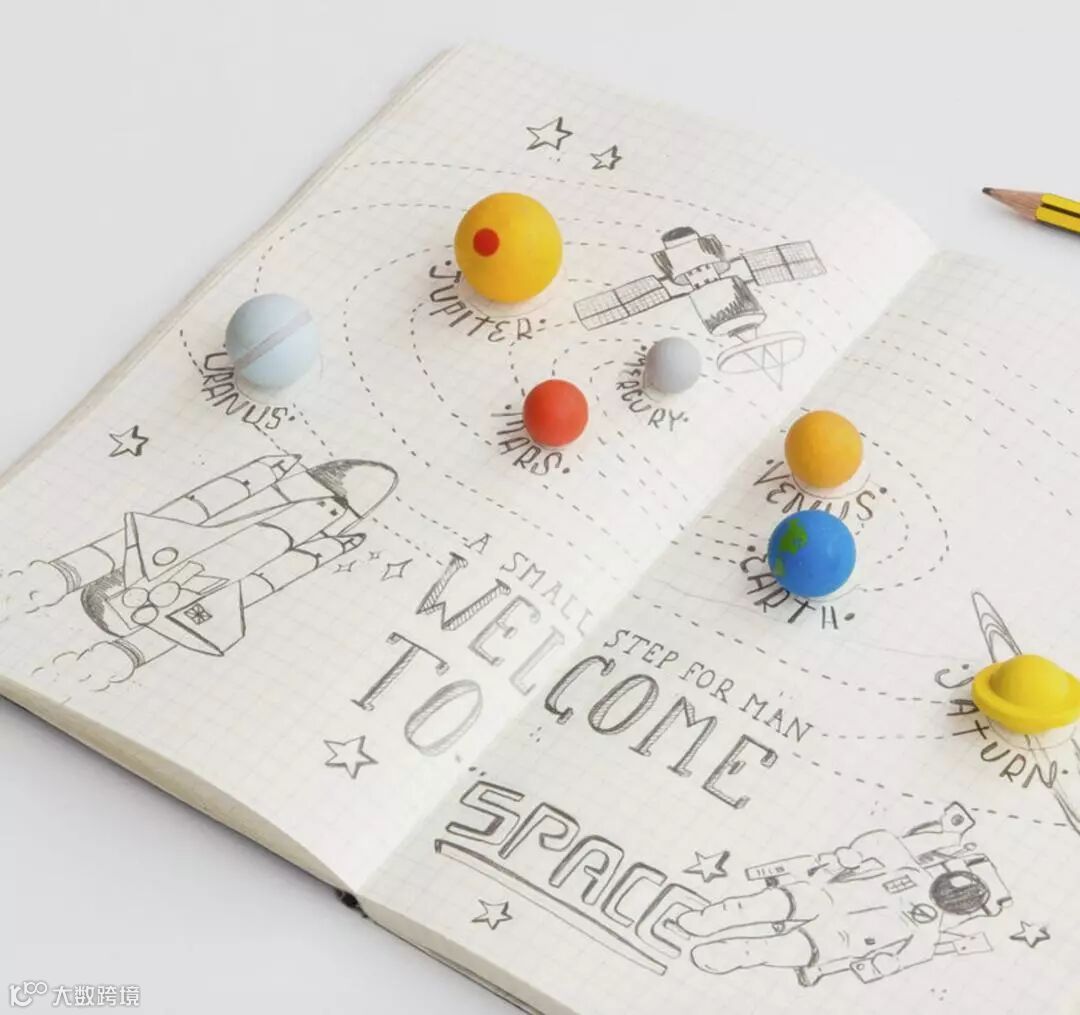 JUPITER
URANUS
MERCURY
MARS
VENUS
EARTH
SATURN
A SMALL
STEP FOR MAN
WELCOME
TO...
SPACE
大数跨境